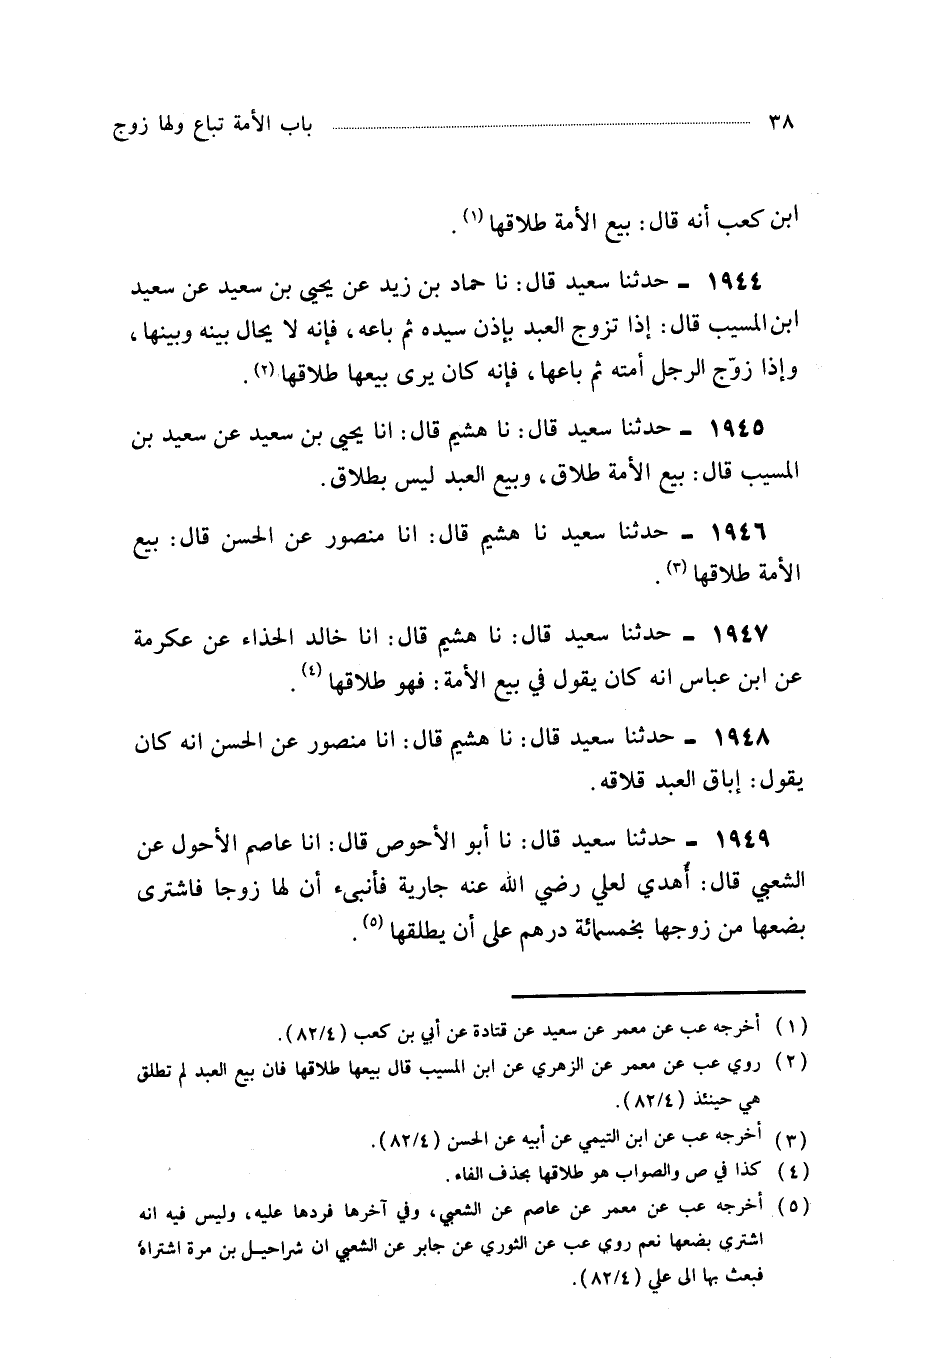 ٣٨ ........ باب الأمة تباع ولها زوج
ابن كعب أنه قال: بيع الأمة طلاقها (١).
١٩٤٤ ـ حدثنا سعيد قال: نا حماد بن زيد عن يحيى بن سعيد عن سعيد
ابن المسيب قال: إذا تزوج العبد بإذن سيده ثم باعه، فإنه لا يحال بينه وبينها،
وإذا زوّج الرجل أمته ثم باعها، فإنه كان يرى بيعها طلاقها (٢).
١٩٤٥ ـ حدثنا سعيد قال: نا هشيم قال: انا يحيى بن سعيد عن سعيد بن
المسيب قال: بيع الأمة طلاق، وبيع العبد ليس بطلاق.
١٩٤٦ ـ حدثنا سعيد نا هشيم قال: انا منصور عن الحسن قال: بيع
الأمة طلاقها (٣).
١٩٤٧ ـ حدثنا سعيد قال: نا هشيم قال: انا خالد الحذاء عن عكرمة
عن ابن عباس انه كان يقول في بيع الأمة: فهو طلاقها (٤).
١٩٤٨ ـ حدثنا سعيد قال: نا هشيم قال: انا منصور عن الحسن انه كان
يقول: إباق العبد قلاقه.
١٩٤٩ ـ حدثنا سعيد قال: نا أبو الأحوص قال: انا عاصم الأحول عن
الشعبي قال: أُهدي لعلي رضي الله عنه جارية فأنبىء أن لها زوجا فاشترى
بضعها من زوجها بخمسمائة درهم على أن يطلقها (٥).
(١) أخرجه عب عن معمر عن سعيد عن قتادة عن أبي بن كعب (٨٢/٤).
(٢) روي عب عن معمر عن الزهري عن ابن المسيب قال بيعها طلاقها فان بيع العبد لم تطلق
هي حينئذ (٨٢/٤).
(٣) أخرجه عب عن ابن التيمي عن أبيه عن الحسن (٨٢/٤).
(٤) كذا في ص والصواب هو طلاقها بحذف الفاء.
(٥) أخرجه عب عن معمر عن عاصم عن الشعبي، وفي آخرها فردها عليه، وليس فيه انه
اشتري بضعها نعم روي عب عن الثوري عن جابر عن الشعبي ان شراحيل بن مرة اشتراه
فبعث بها الى علي (٨٢/٤).